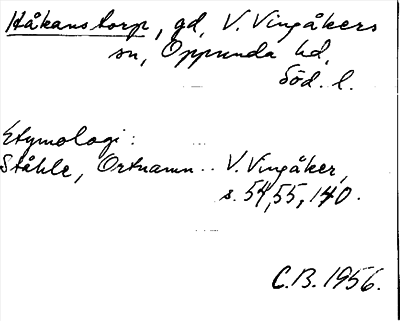 Håkanstorp, gd, V. Vingåkers
sn, Oppunda hd,
Söd. l.
Etymologi:
Ståhle, Ortnamn .. V. Vingåker,
s. 54, 55, 140.
C.B. 1956.